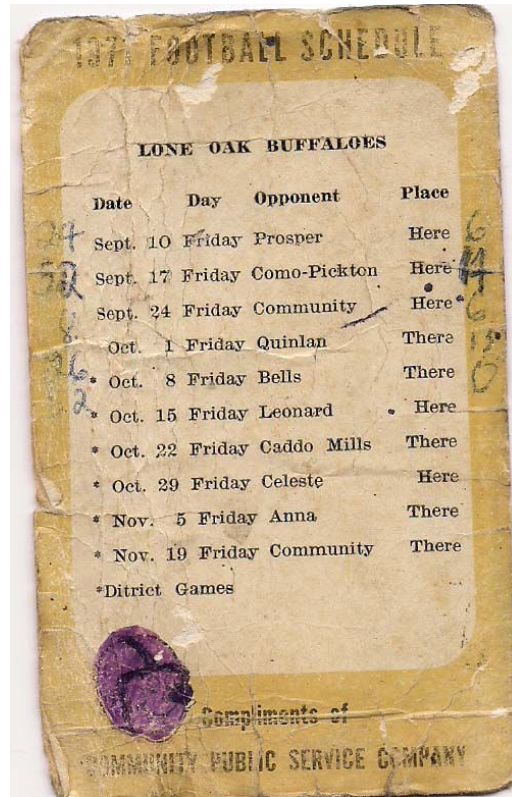 1971 FOOTBALL SCHEDULE
LONE OAK BUFFALOES
Date Day Opponent Place
Sept. 10 Friday Prosper Here 6
Sept. 17 Friday Como-Pickton Here
Sept. 24 Friday Community Here 6
8 Oct. 1 Friday Quinlan There
* Oct. 8 Friday Bells There 0
* Oct. 15 Friday Leonard Here
* Oct. 22 Friday Caddo Mills There
* Oct. 29 Friday Celeste Here
* Nov. 5 Friday Anna There
* Nov. 19 Friday Community There
*Ditrict Games
Compliments of
COMMUNITY PUBLIC SERVICE COMPANY